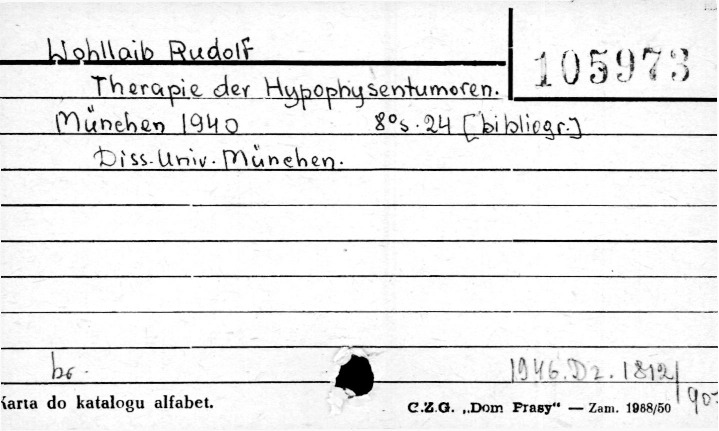 Wohllaib Rudolf
105973
Therapie der Hypophysentumoren.
München 1940 8° s. 24 [bibliogr.]
Diss. Univ. München.
br.
1946. Dz. 1812/
907
Karta do katalogu alfabet.
C.Z.G. „Dom Prasy“ — Zam. 1988/50